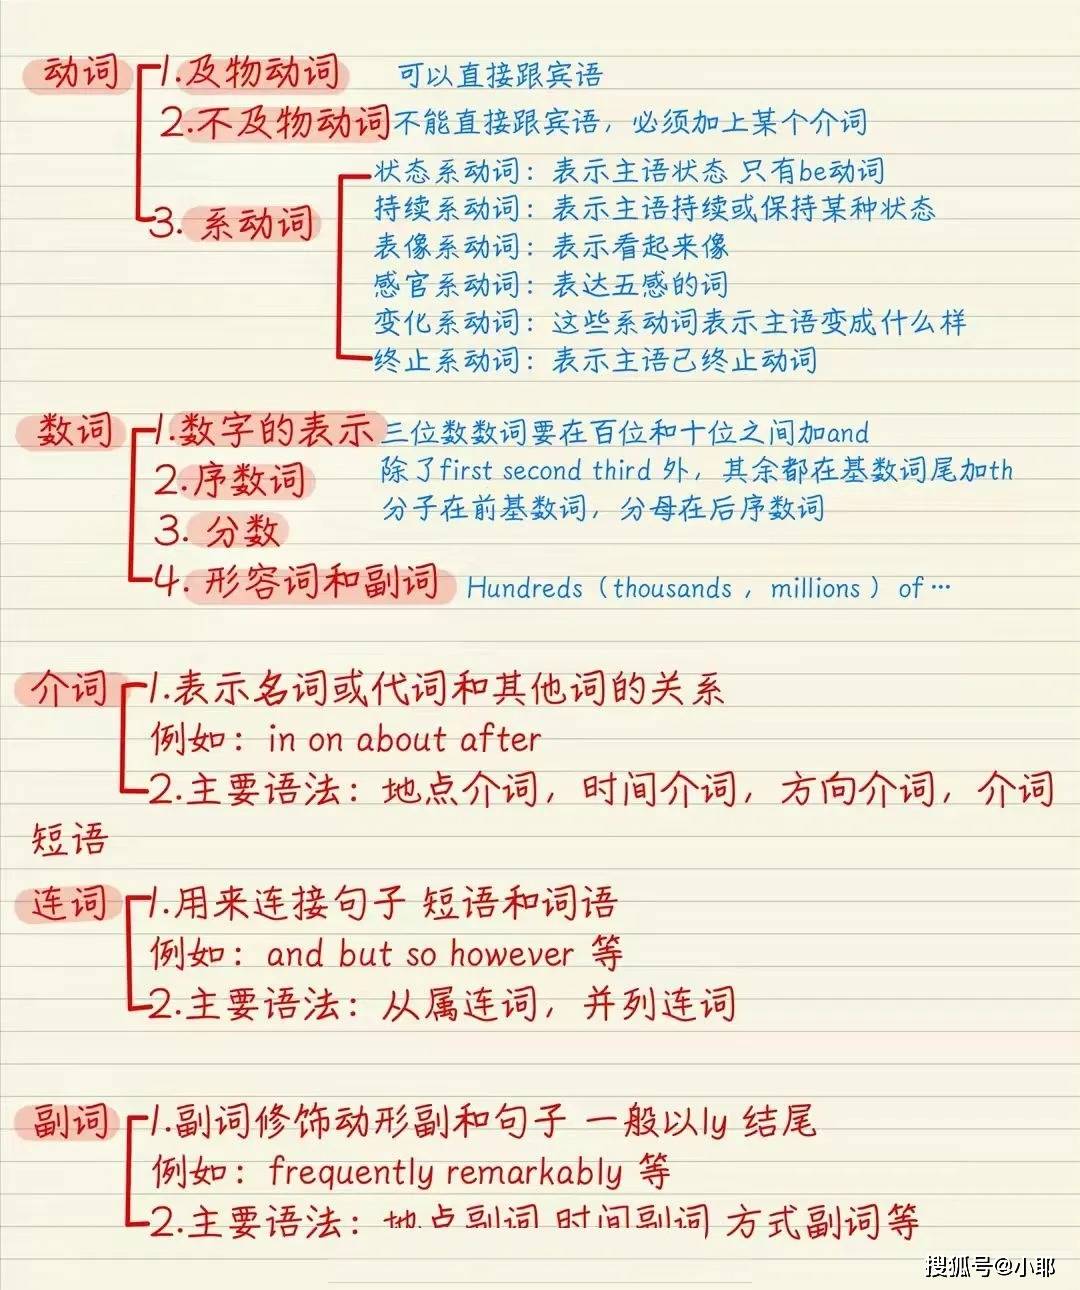 动词 1.及物动词 可以直接跟宾语
2.不及物动词 不能直接跟宾语，必须加上某个介词
3.系动词
状态系动词：表示主语状态 只有be动词
持续系动词：表示主语持续或保持某种状态
表像系动词：表示看起来像
感官系动词：表达五感的词
变化系动词：这些系动词表示主语变成什么样
终止系动词：表示主语已终止动词
数词 1.数字的表示 三位数数词要在百位和十位之间加and
2.序数词 除了first second third 外，其余都在基数词尾加th
3.分数 分子在前基数词，分母在后序数词
4.形容词和副词 Hundreds（thousands ，millions ）of …
介词 1.表示名词或代词和其他词的关系
例如：in on about after
2.主要语法：地点介词，时间介词，方向介词，介词
短语
连词 1.用来连接句子 短语和词语
例如：and but so however 等
2.主要语法：从属连词，并列连词
副词 1.副词修饰动形副和句子 一般以ly 结尾
例如：frequently remarkably 等
2.主要语法：地点副词 时间副词 方式副词等
搜狐号@小耶